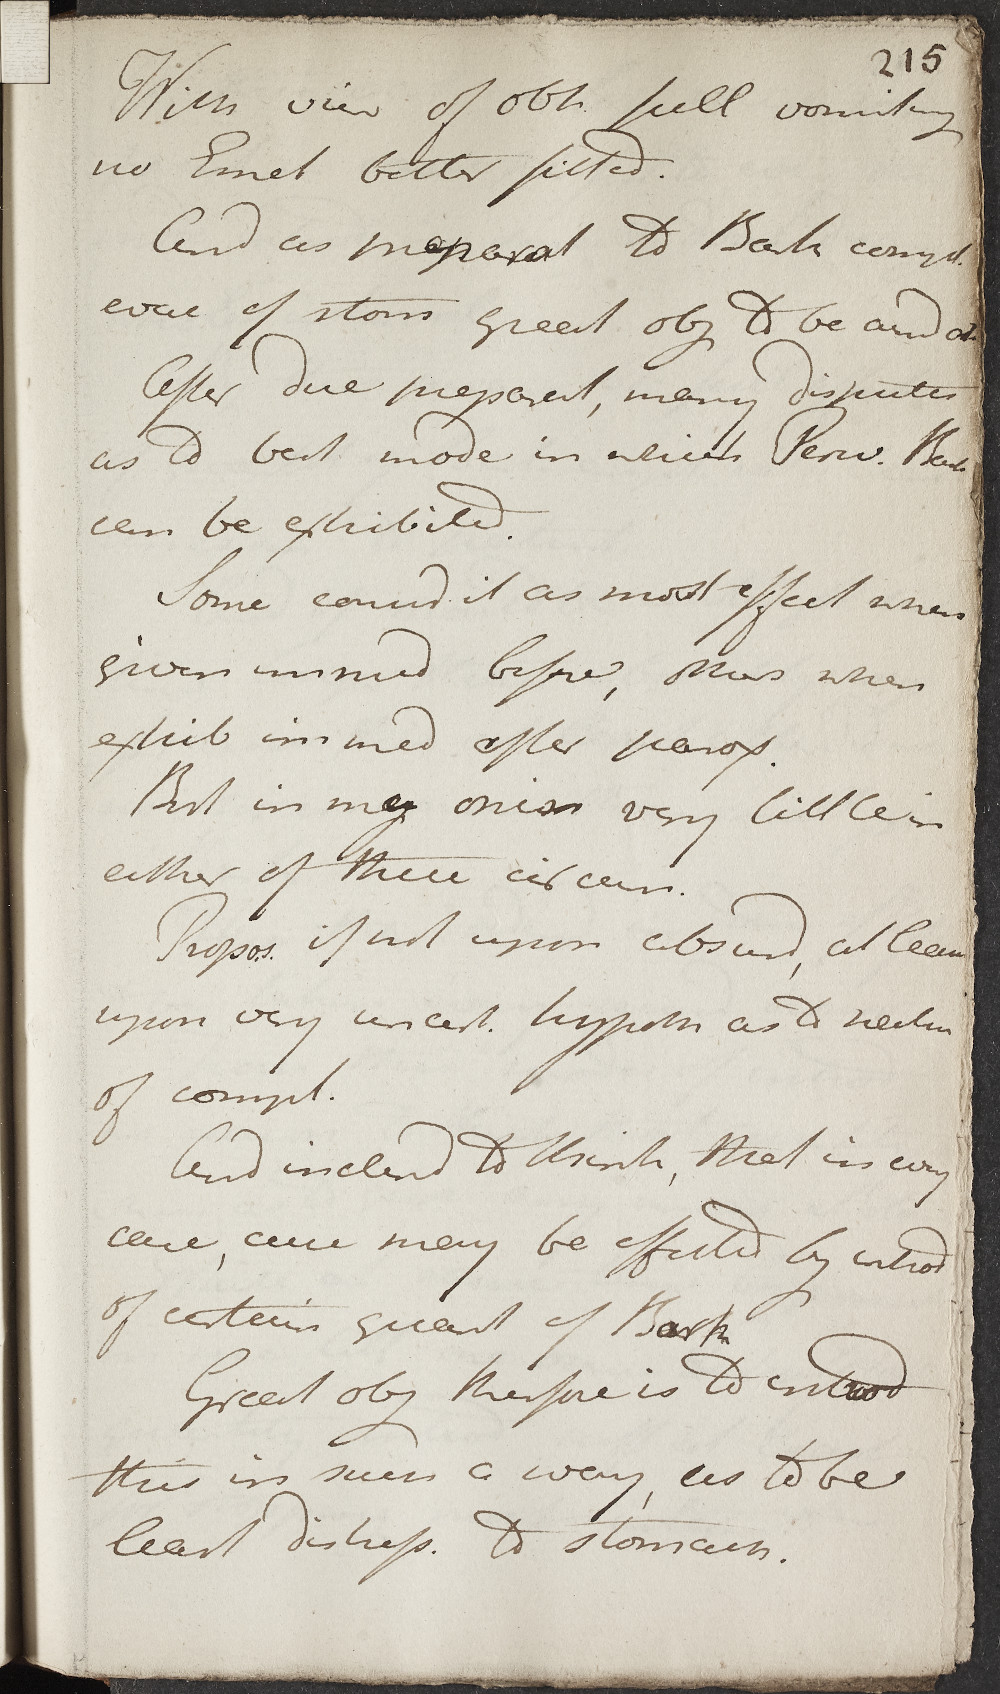 215
With view of obt. full vomiting
no Emet better fitted.
And as preparat to Bark compl.
evac of stom great obj to be aimd at
After due preparat, many disputes
as to best mode in which Peruv. Bark
can be exhibited.
Some consid it as most effect when
given immed before, others when
exhib immed after parox.
But in my opinion very little in
either of these circum.
Propos. if not upon absurd, at least
upon very uncert. hypoth as to
of compl.
And inclend to think, that in every
case, cure may be effected by introd
of certain quant of Bark
Great obj therfore is to introd
this in such a way, as to be
least distress. to stomach.